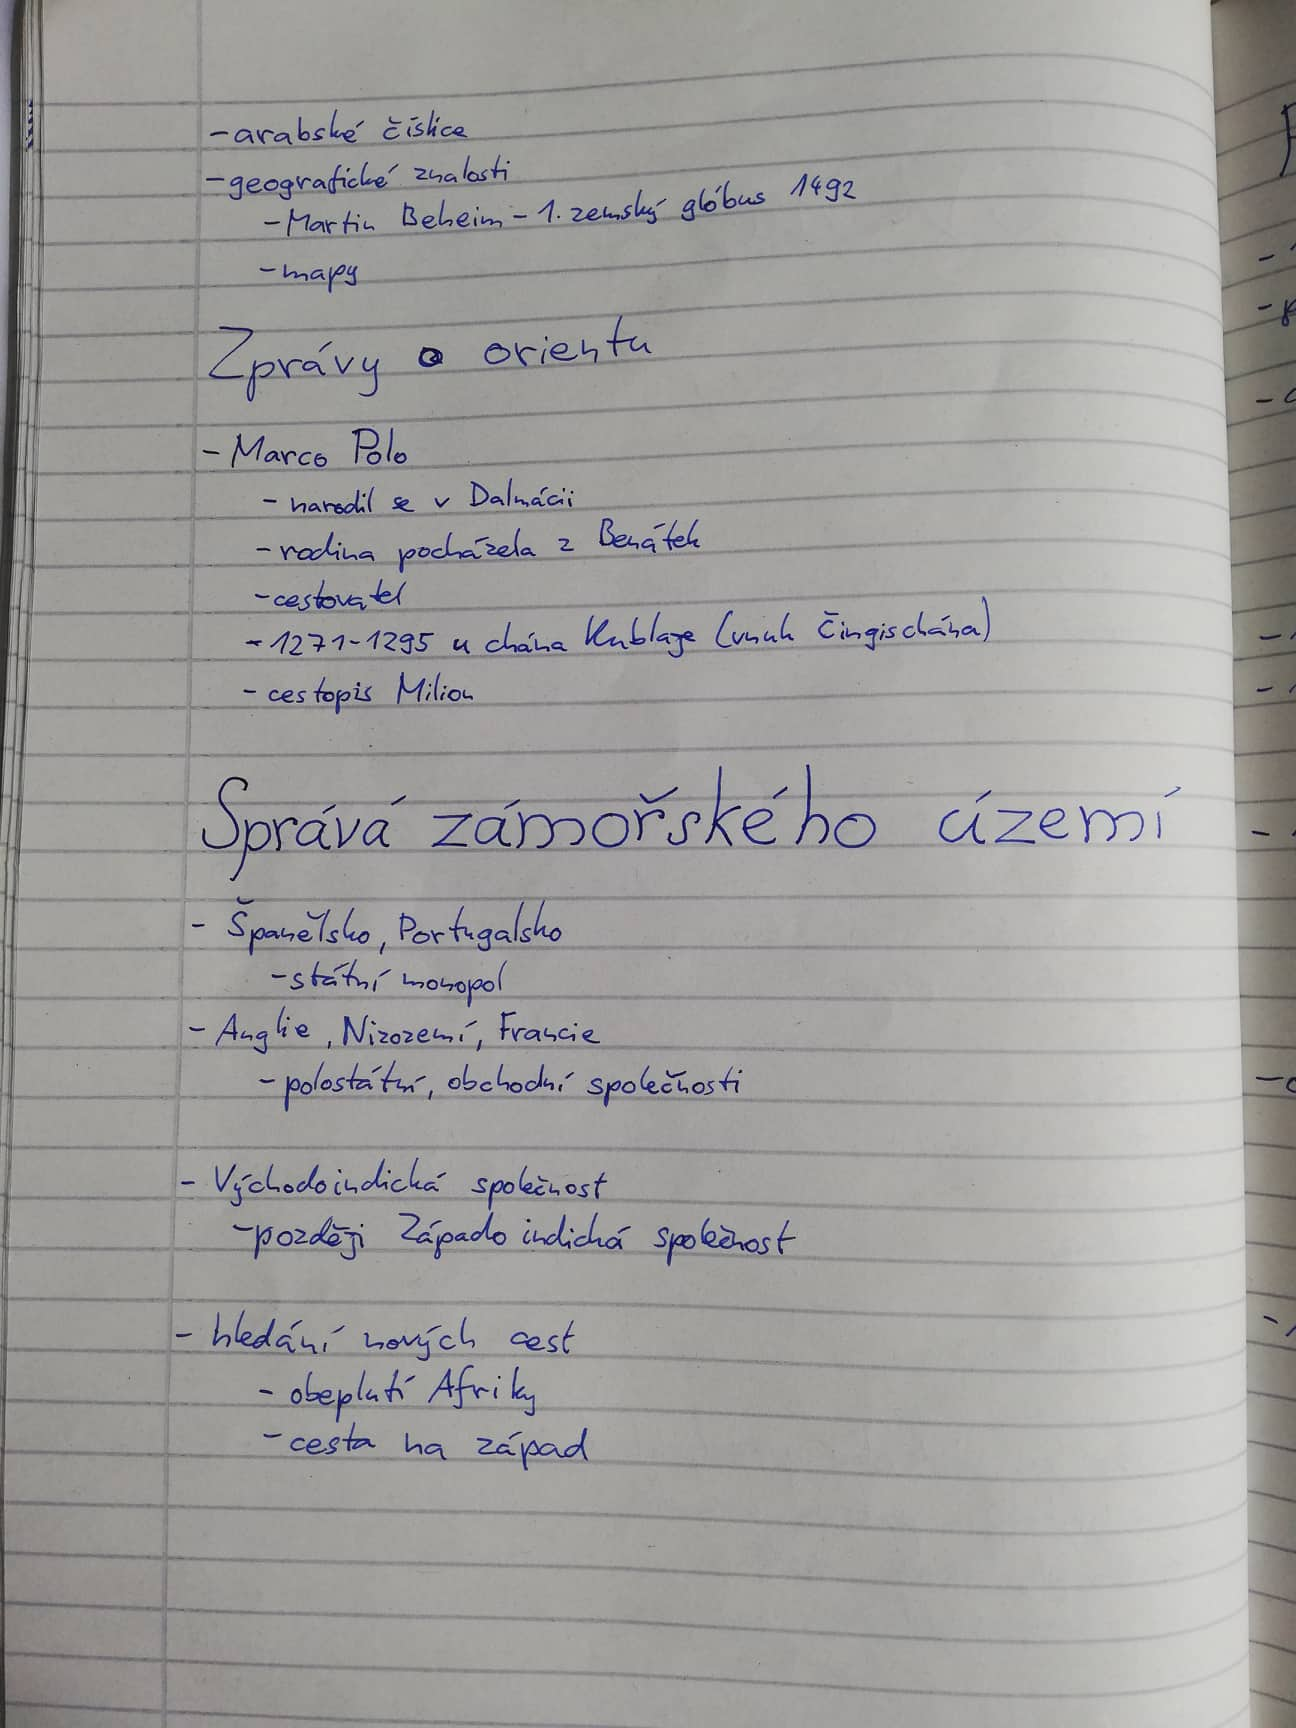 -arabské číslice
-geografické znalosti
-Martin Beheim-1. zemský glóbus 1492
-mapy
Zprávy o orientu
-Marco Polo
-narodil se v Dalmácii
-rodina pocházela z Benátek
-cestovatel
-1271-1295 u chána Kublaje (vnuk Čingischána)
-cestopis Milion
Správá zámořského území
-Španělsko, Portugalsko
-státní monopol
-Anglie, Nizozemí, Francie
-polostátní, obchodní společnosti
-Východoindická společnost
-později Západoindická společnost
-hledání nových cest
-obeplutí Afriky
-cesta na západ